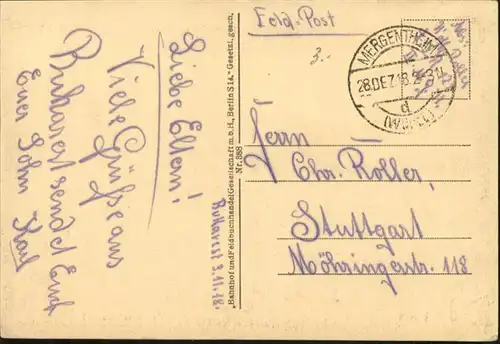 Liebe Eltern!
Viele Grüsse aus
Bukarest sendet Euch
Euer Sohn Karl
Bukarest 3.11.18.
"Bahnhof und Feldbuchhandel Gesellschaft m.b.H., Berlin S 14." Gesetzl. gesch.
Nr. 388
Feld-Post
3.-
MERGENTHEIM
28.DEZ.18.2-3N.
d
(WÜRTT.)
Abs:
Roller
Herrn
Chr. Roller,
Stuttgart
Möhringerstr. 118